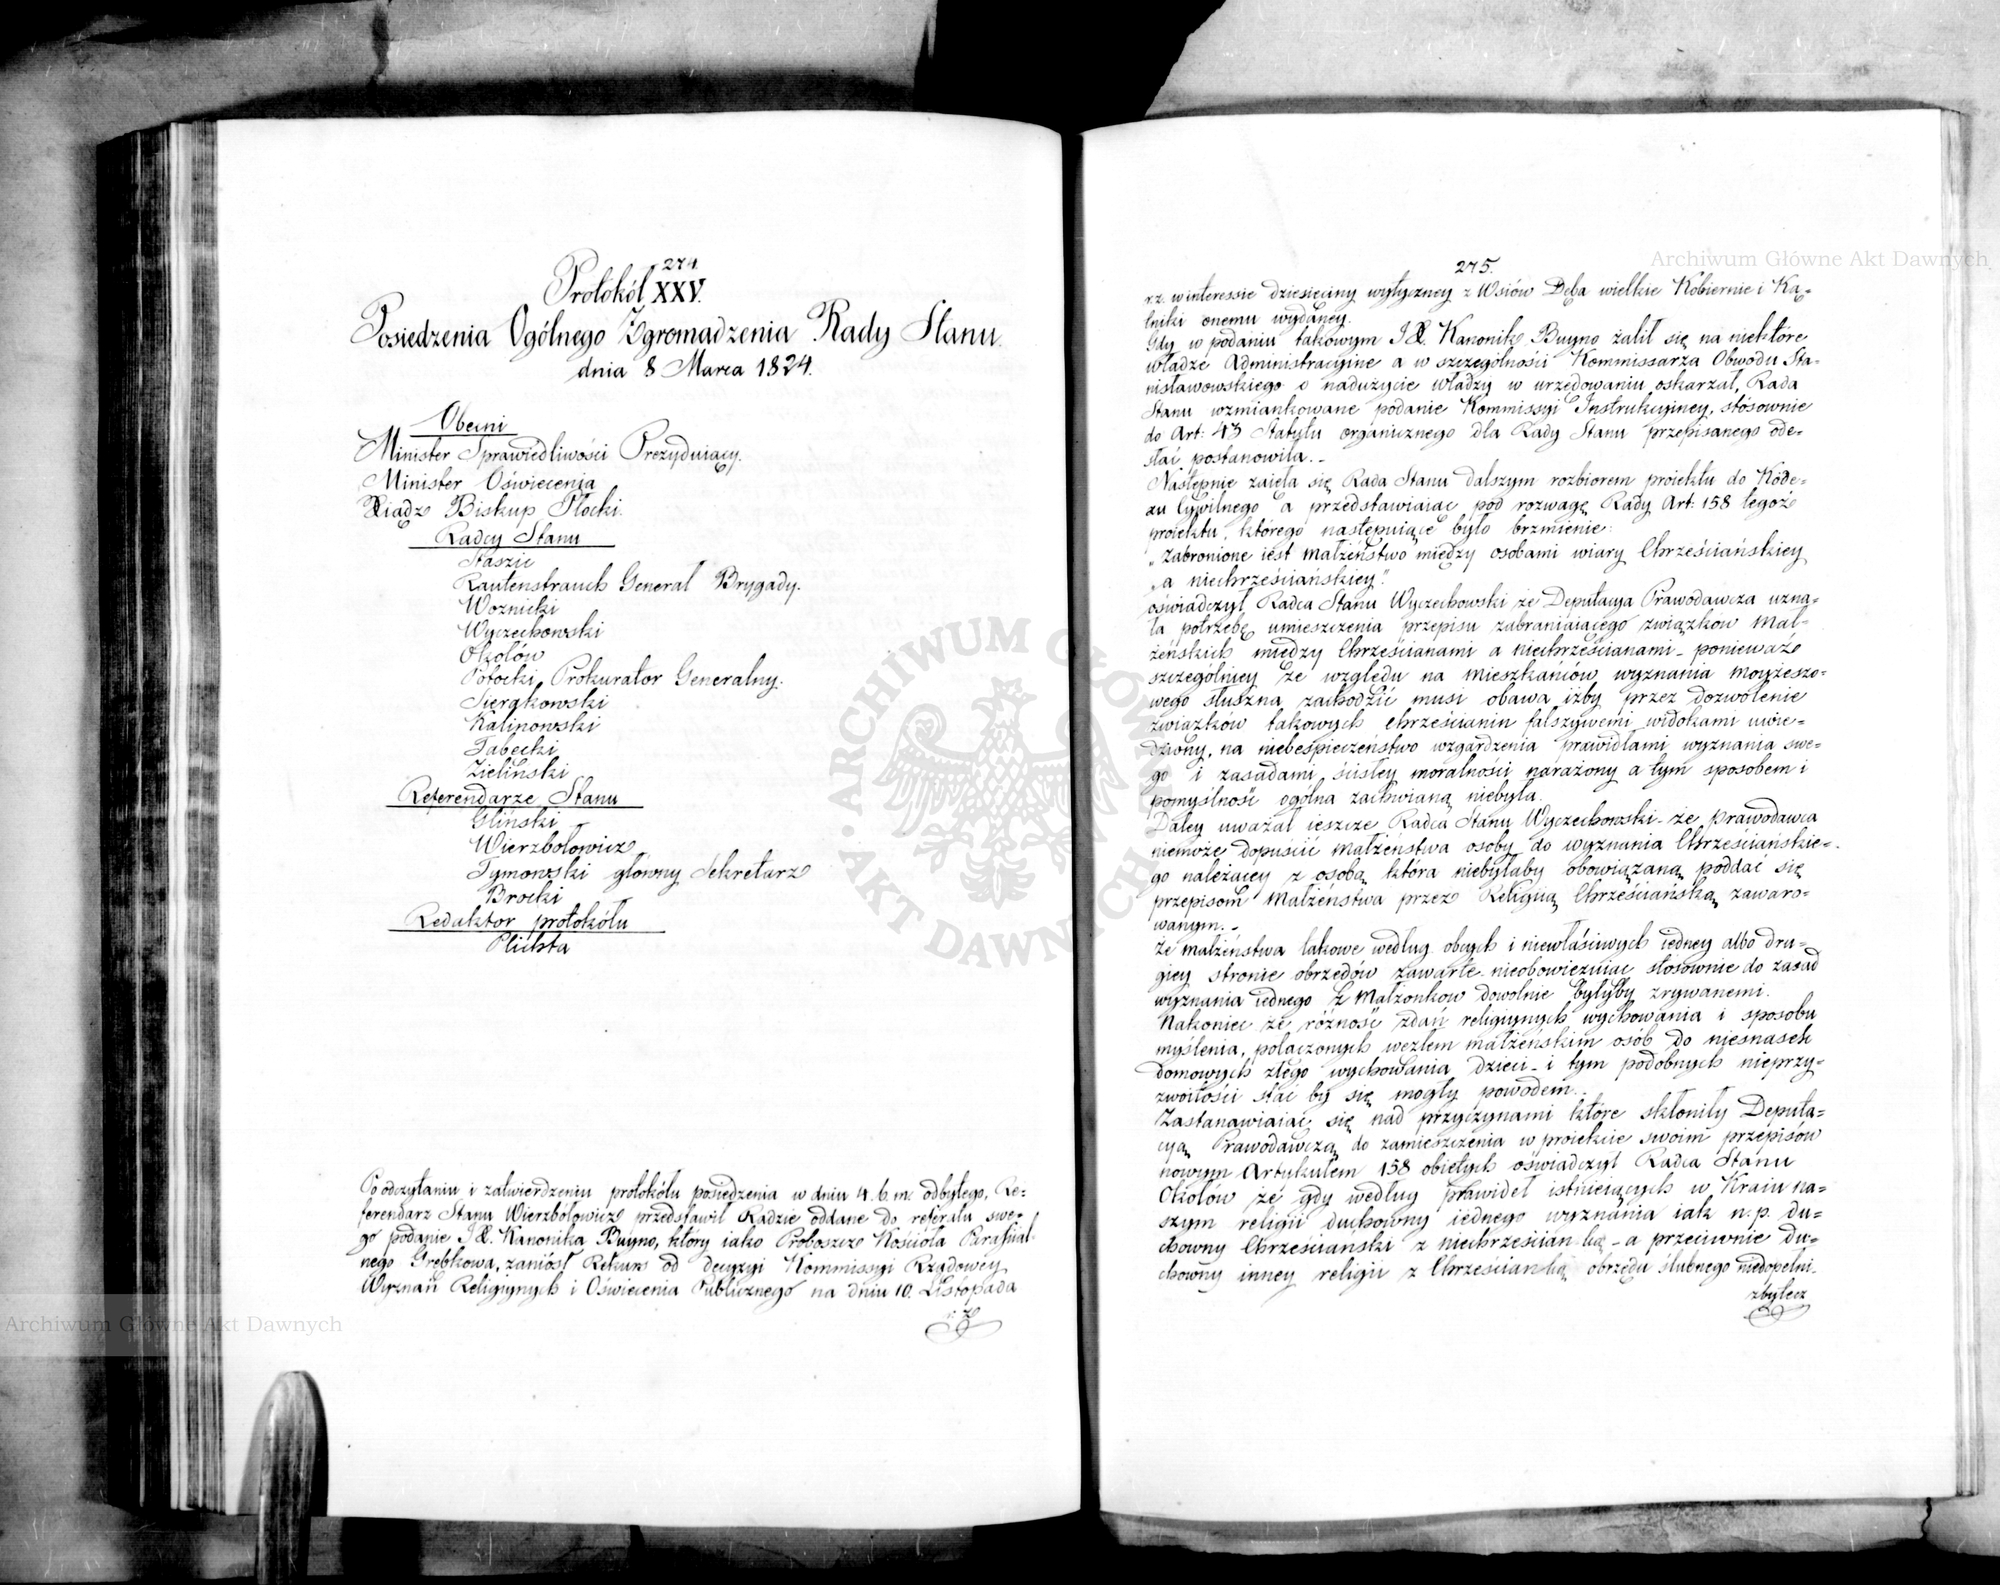 274.
Protokół XXV.
Posiedzenia Ogólnego Zgromadzenia Rady Stanu.
dnia 8 Marca 1824.
Obecni
Minister Sprawiedliwości Prezyduiący.
Minister Oświecenia
Xiądz Biskup Płocki.
Radcy Stanu
Staszic
Rautenstrauch Generał Brygady.
Woznicki
Wyczechowski
Okołów
Potocki Prokurator Generalny.
Sierakowski
Kalinowski
Tabęcki
Zieliński
Referendarze Stanu
Gliński
Wierzbołowicz
Tymowski główny Sekretarz
Brocki
Redaktor protokółu
Plichta
Po odczytaniu i zatwierdzeniu protokółu posiedzenia w dniu 4. b. m. odbytego, Re=
ferendarz Stanu Wierzbołowicz przedstawił Radzie oddane do referatu swe=
go podanie JX. Kanonika Buyno, który iako Proboszcz Kościoła Parafial=
nego Grębkowa, zaniósł Rekurs od decyzyi Kommissyi Rządowey
Wyznań Religiynych i Oświecenia Publicznego na dniu 10. Listopada
r. z.
275.
r. z. w interessie dziesięciny wytyczney z Wsiów Dęba wielkie Kobiernie i Ką=
tniki onemu wydaney.
Gdy w podaniu takowym JX. Kanonik Buyno żalił się na niektóre
władze Administracyine a w szczególności Kommissarza Obwodu Sta=
nisławowskiego o nadużycie władzy w urzędowaniu oskarżał, Rada
Stanu wzmiankowane podanie Kommissyi Instrukcyiney, stósownie
do Art: 43 Statutu organicznego dla Rady Stanu przepisanego ode=
słać postanowiła.
Następnie zaięła się Rada Stanu dalszym rozbiorem proiektu do Kode=
xu Cywilnego a przedstawiaiąc pod rozwagę Rady Art: 158 tegoż
proiektu, którego następuiące było brzmienie:
„Zabronione iest małżeństwo między osobami wiary Chrześciańskiey
„a niechrześciańskiey".
oświadczył Radca Stanu Wyczechowski że Deputacya Prawodawcza uzna=
ła potrzebę umieszczenia przepisu zabraniaiącego związków mał=
żeńskich między Chrześcianami a niechrześcianami - ponieważ
szczególniey ze względu na mieszkańców wyznania moyżeszo=
wego słuszna zachodzić musi obawa iżby przez dozwolenie
związków takowych chrześcianin fałszywemi widokami uwie=
dziony, na niebespieczeństwo wzgardzenia prawidłami wyznania swe=
go i zasadami ścisłey moralności narażony a tym sposobem i
pomyślność ogólna zachwianą niebyła.
Daley uważał ieszcze Radca Stanu Wyczechowski - że prawodawca
niemoże dopuścić małżeństwa osoby do wyznania Chrześciańskie=
go należącey z osobą która niebyłaby obowiązaną poddać się
przepisom Małżeństwa przez Religiią Chrześciańską zawaro=
wanym. -
Że małżeństwa takowe według obcych i niewłaściwych iedney albo dru=
giey stronie obrzędów zawarte nieobowiezuiąc stósownie do zasad
wyznania iednego z Małżonków dowolnie byłyby zrywanemi.
Nakoniec że różność zdań religiynych wychowania i sposobu
myślenia, połączonych węzłem małżeńskim osób do niesnasek
domowych złego wychowania dzieci - i tym podobnych nieprzy=
zwoitości stać by się mogły powodem.
Zastanawiaiąc się nad przyczynami które skłoniły Deputa=
cyą Prawodawczą do zamieszczenia w proiekcie swoim przepisów
nowym Artykułem 158 obiętych oświadczył Radca Stanu
Okołów że gdy według prawideł istnieiących w Kraiu na=
szym religii duchowny iednego wyznania iak n. p. du=
chowny Chrześciański z niechrześcian-ką - a przeciwnie du=
chowny inney religii z Chrześcianką obrzędu ślubnego niedopełni.
zbytecz
Archiwum Główne Akt Dawnych
Archiwum Główne Akt Dawnych
ARCHIWUM GŁÓWNE AKT DAWNYCH